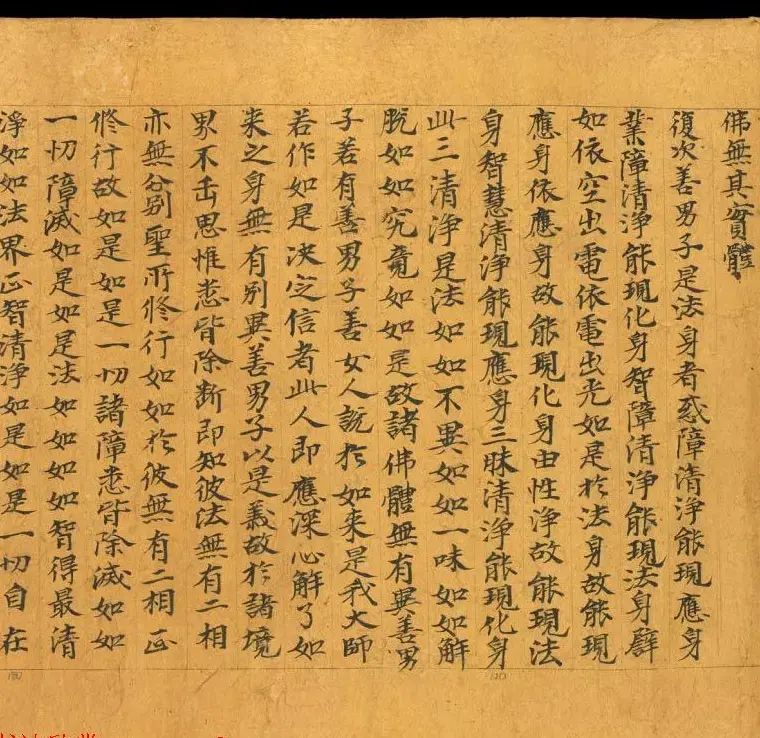 佛無其實體
復次善男子是法身者惑障清淨能現應身
業障清淨能現化身智障清淨能現法身譬
如依空出電依電出光如是於法身故能現
應身依應身故能現化身由性淨故能現法
身智慧清淨能現應身三昧清淨能現化身
此三清淨是法如如不異如如一味如如解
脫如如究竟如如是故諸佛體無有異善男
子若有善男子善女人說於如來是我大師
若作如是決定信者此人即應深心解了如
来之身無有別異善男子以是義故於諸境
界不正思惟悉皆除斷即知彼法無有二相
亦無分別聖所修行如如於彼無有二相正
修行故如是如是一切諸障悉皆除滅如如
一切障滅如是如是法如如如如智得最清
淨如如法界正智清淨如是如是一切自在